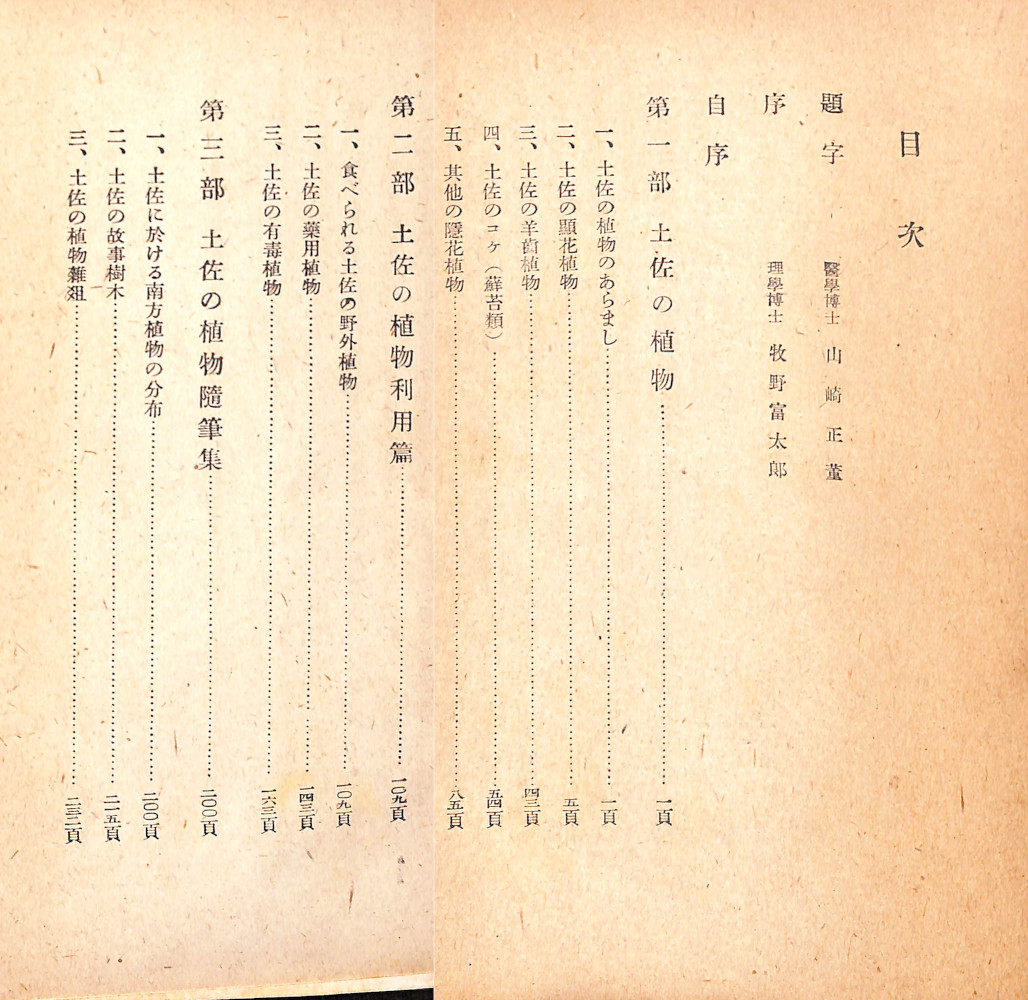 目次
題字 醫學博士 山崎正董
序 理學博士 牧野富太郞
自序
第一部 土佐の植物……一頁
一、土佐の植物のあらまし……一頁
二、土佐の顯花植物……五頁
三、土佐の羊齒植物……四三頁
四、土佐のコケ(蘚苔類)……五四頁
五、其他の隱花植物……八五頁
第二部 土佐の植物利用篇……一〇九頁
一、食べられる土佐の野外植物……一〇九頁
二、土佐の藥用植物……一四三頁
三、土佐の有毒植物……一六三頁
第三部 土佐の植物隨筆集……二〇〇頁
一、土佐に於ける南方植物の分布……二〇〇頁
二、土佐の故事樹木……二一五頁
三、土佐の植物雜爼……二三二頁